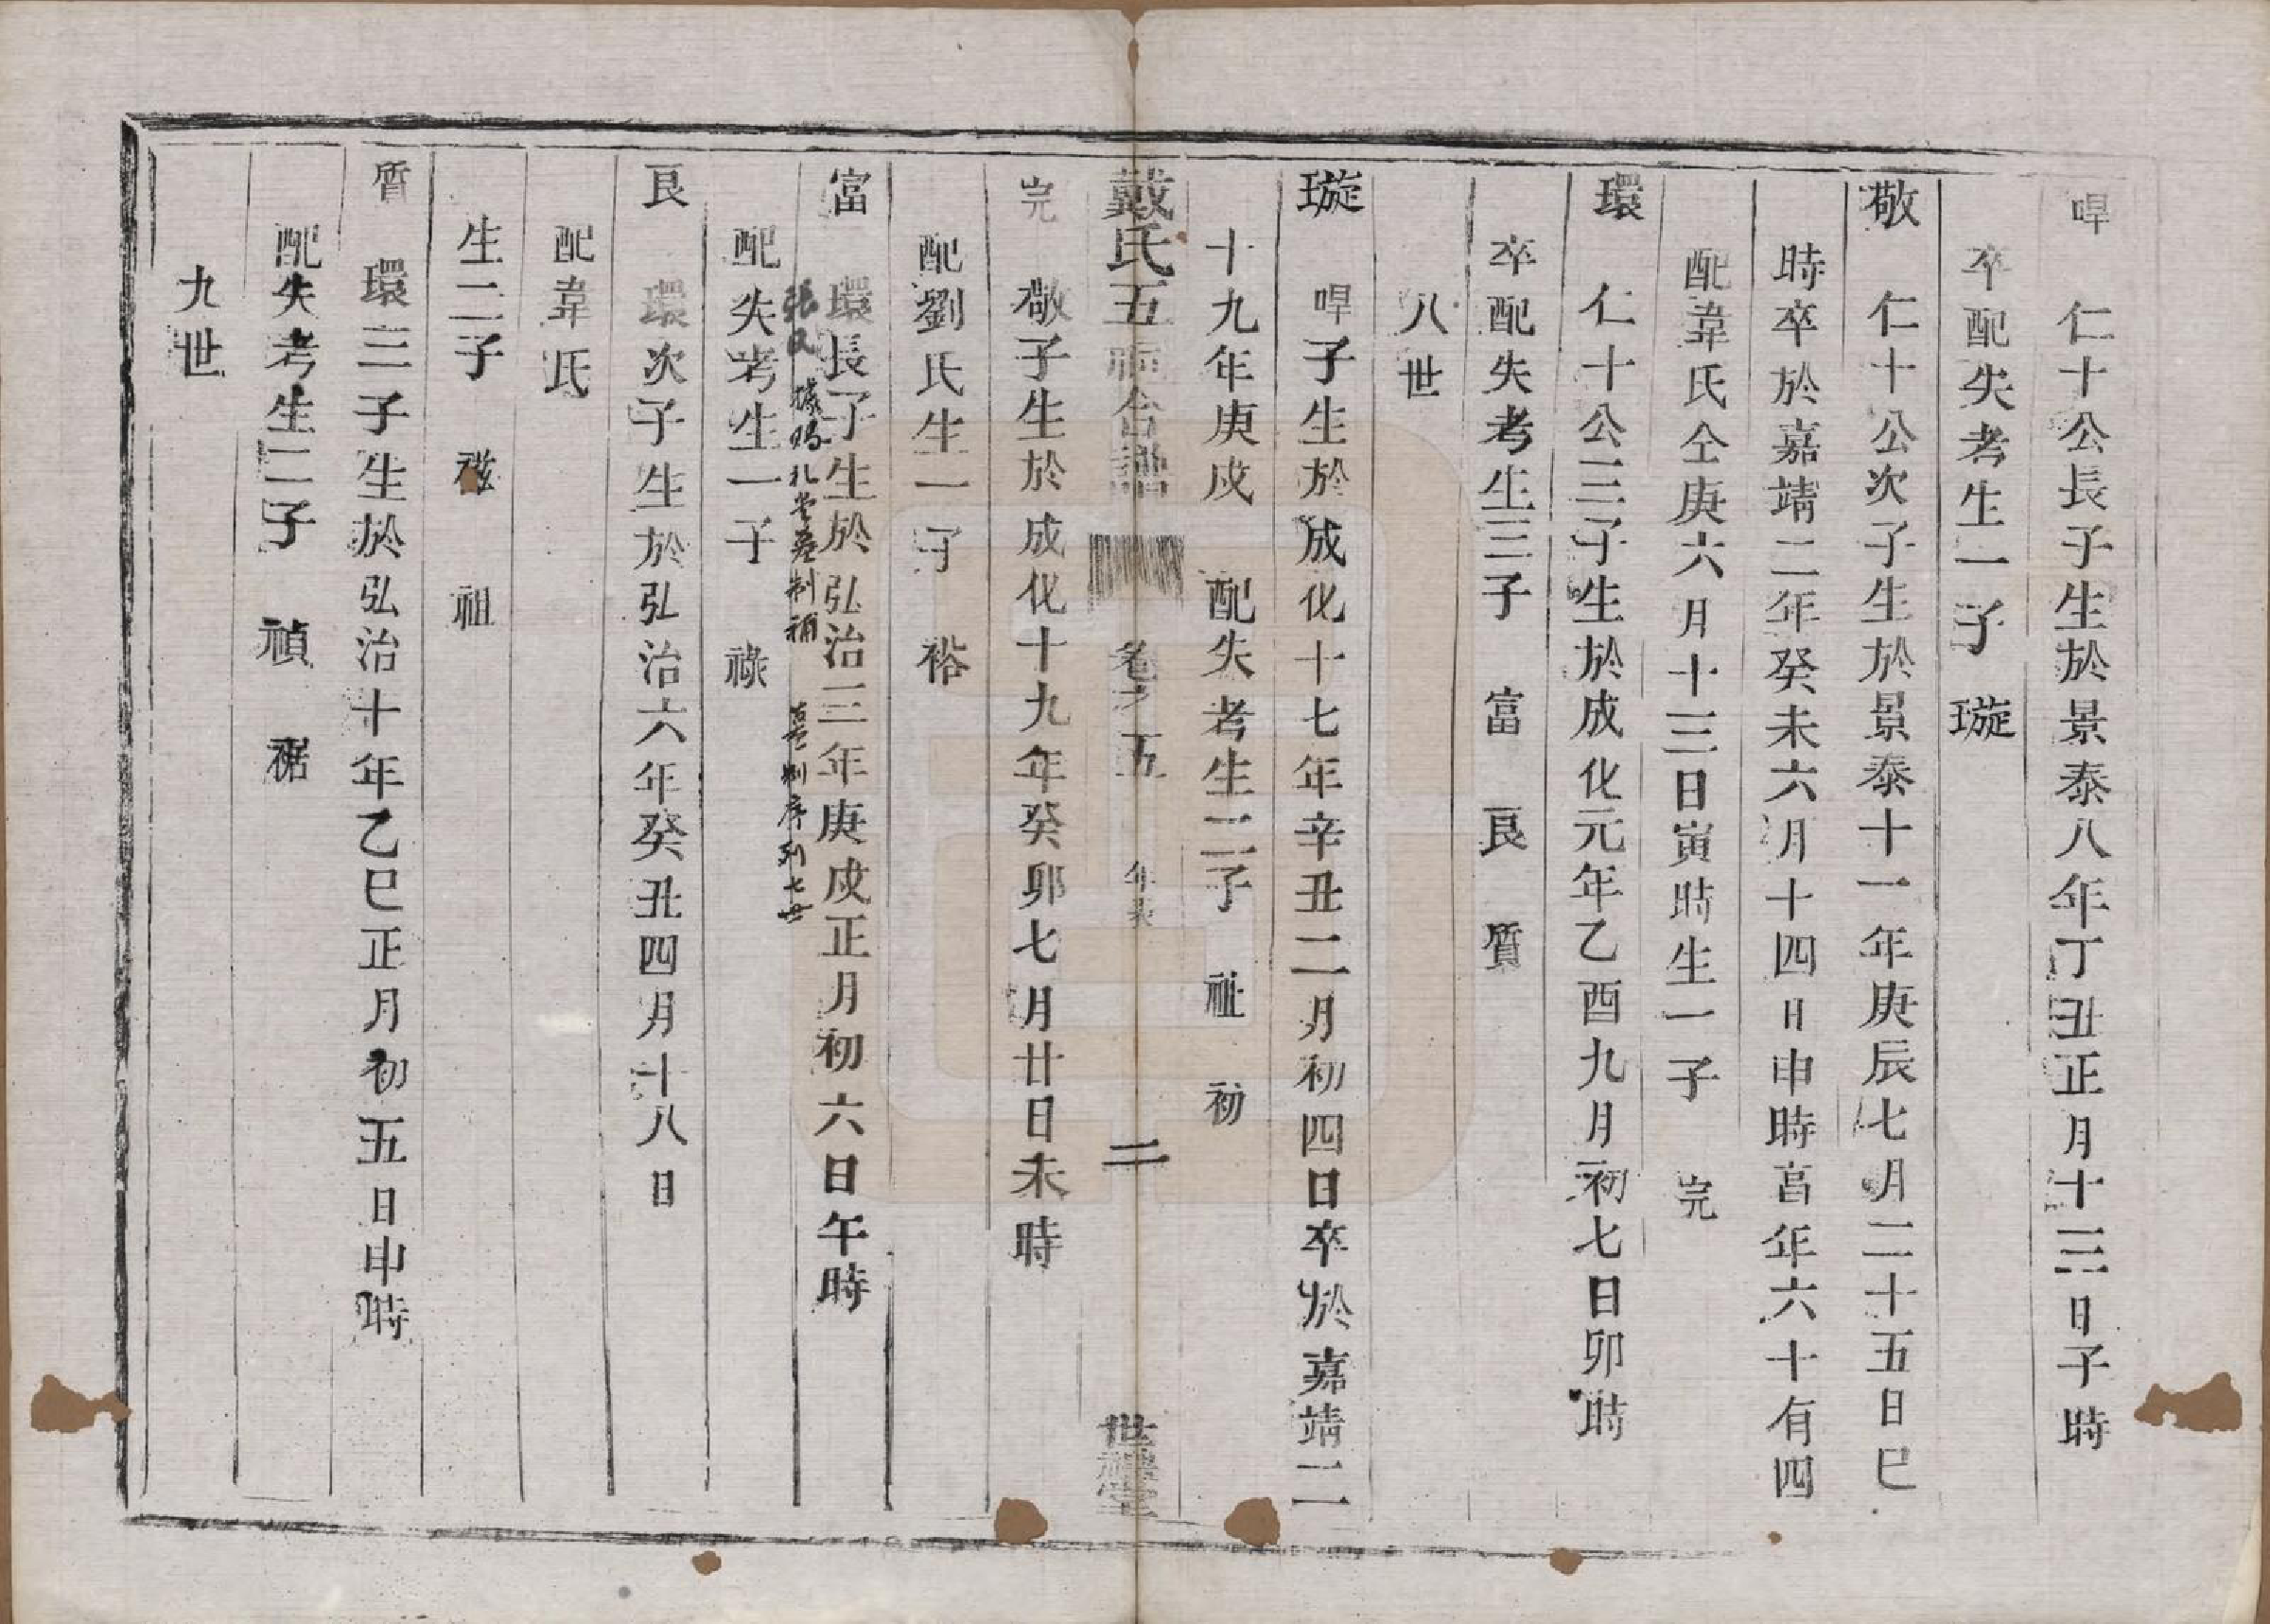 哻　仁十公長子生於景泰八年丁丑正月十三日子時
卒配失考生一子　璇
敬　仁十公次子生於景泰十一年庚辰七月二十五日巳
時卒於嘉靖二年癸未六月十四日申時亯年六十有四
配韋氏仝庚六月十三日寅時生一子　完
環　仁十公三子生於成化元年乙酉九月初七日卯時
卒配失考生三子　富　良　質
八世
璇　哻子生於成化十七年辛丑二月初四日卒於嘉靖二
十九年庚戍　配失考生二子　祉　初
戴氏五　合譜　卷之五　年表　二　世　堂
完　敬子生於成化十九年癸卯七月廿日未時
配劉氏生一子　裕
富　環長子生於弘治三年庚戍正月初六日午時
張氏　據賜礼堂墓制補　墓制序列七世
配失考生一子　祿
良　環次子生於弘治六年癸丑四月十八日
配韋氏
生二子　　祖
質　環三子生於弘治十年乙巳正月初五日申時
配失考生二子　禎　裾
九世